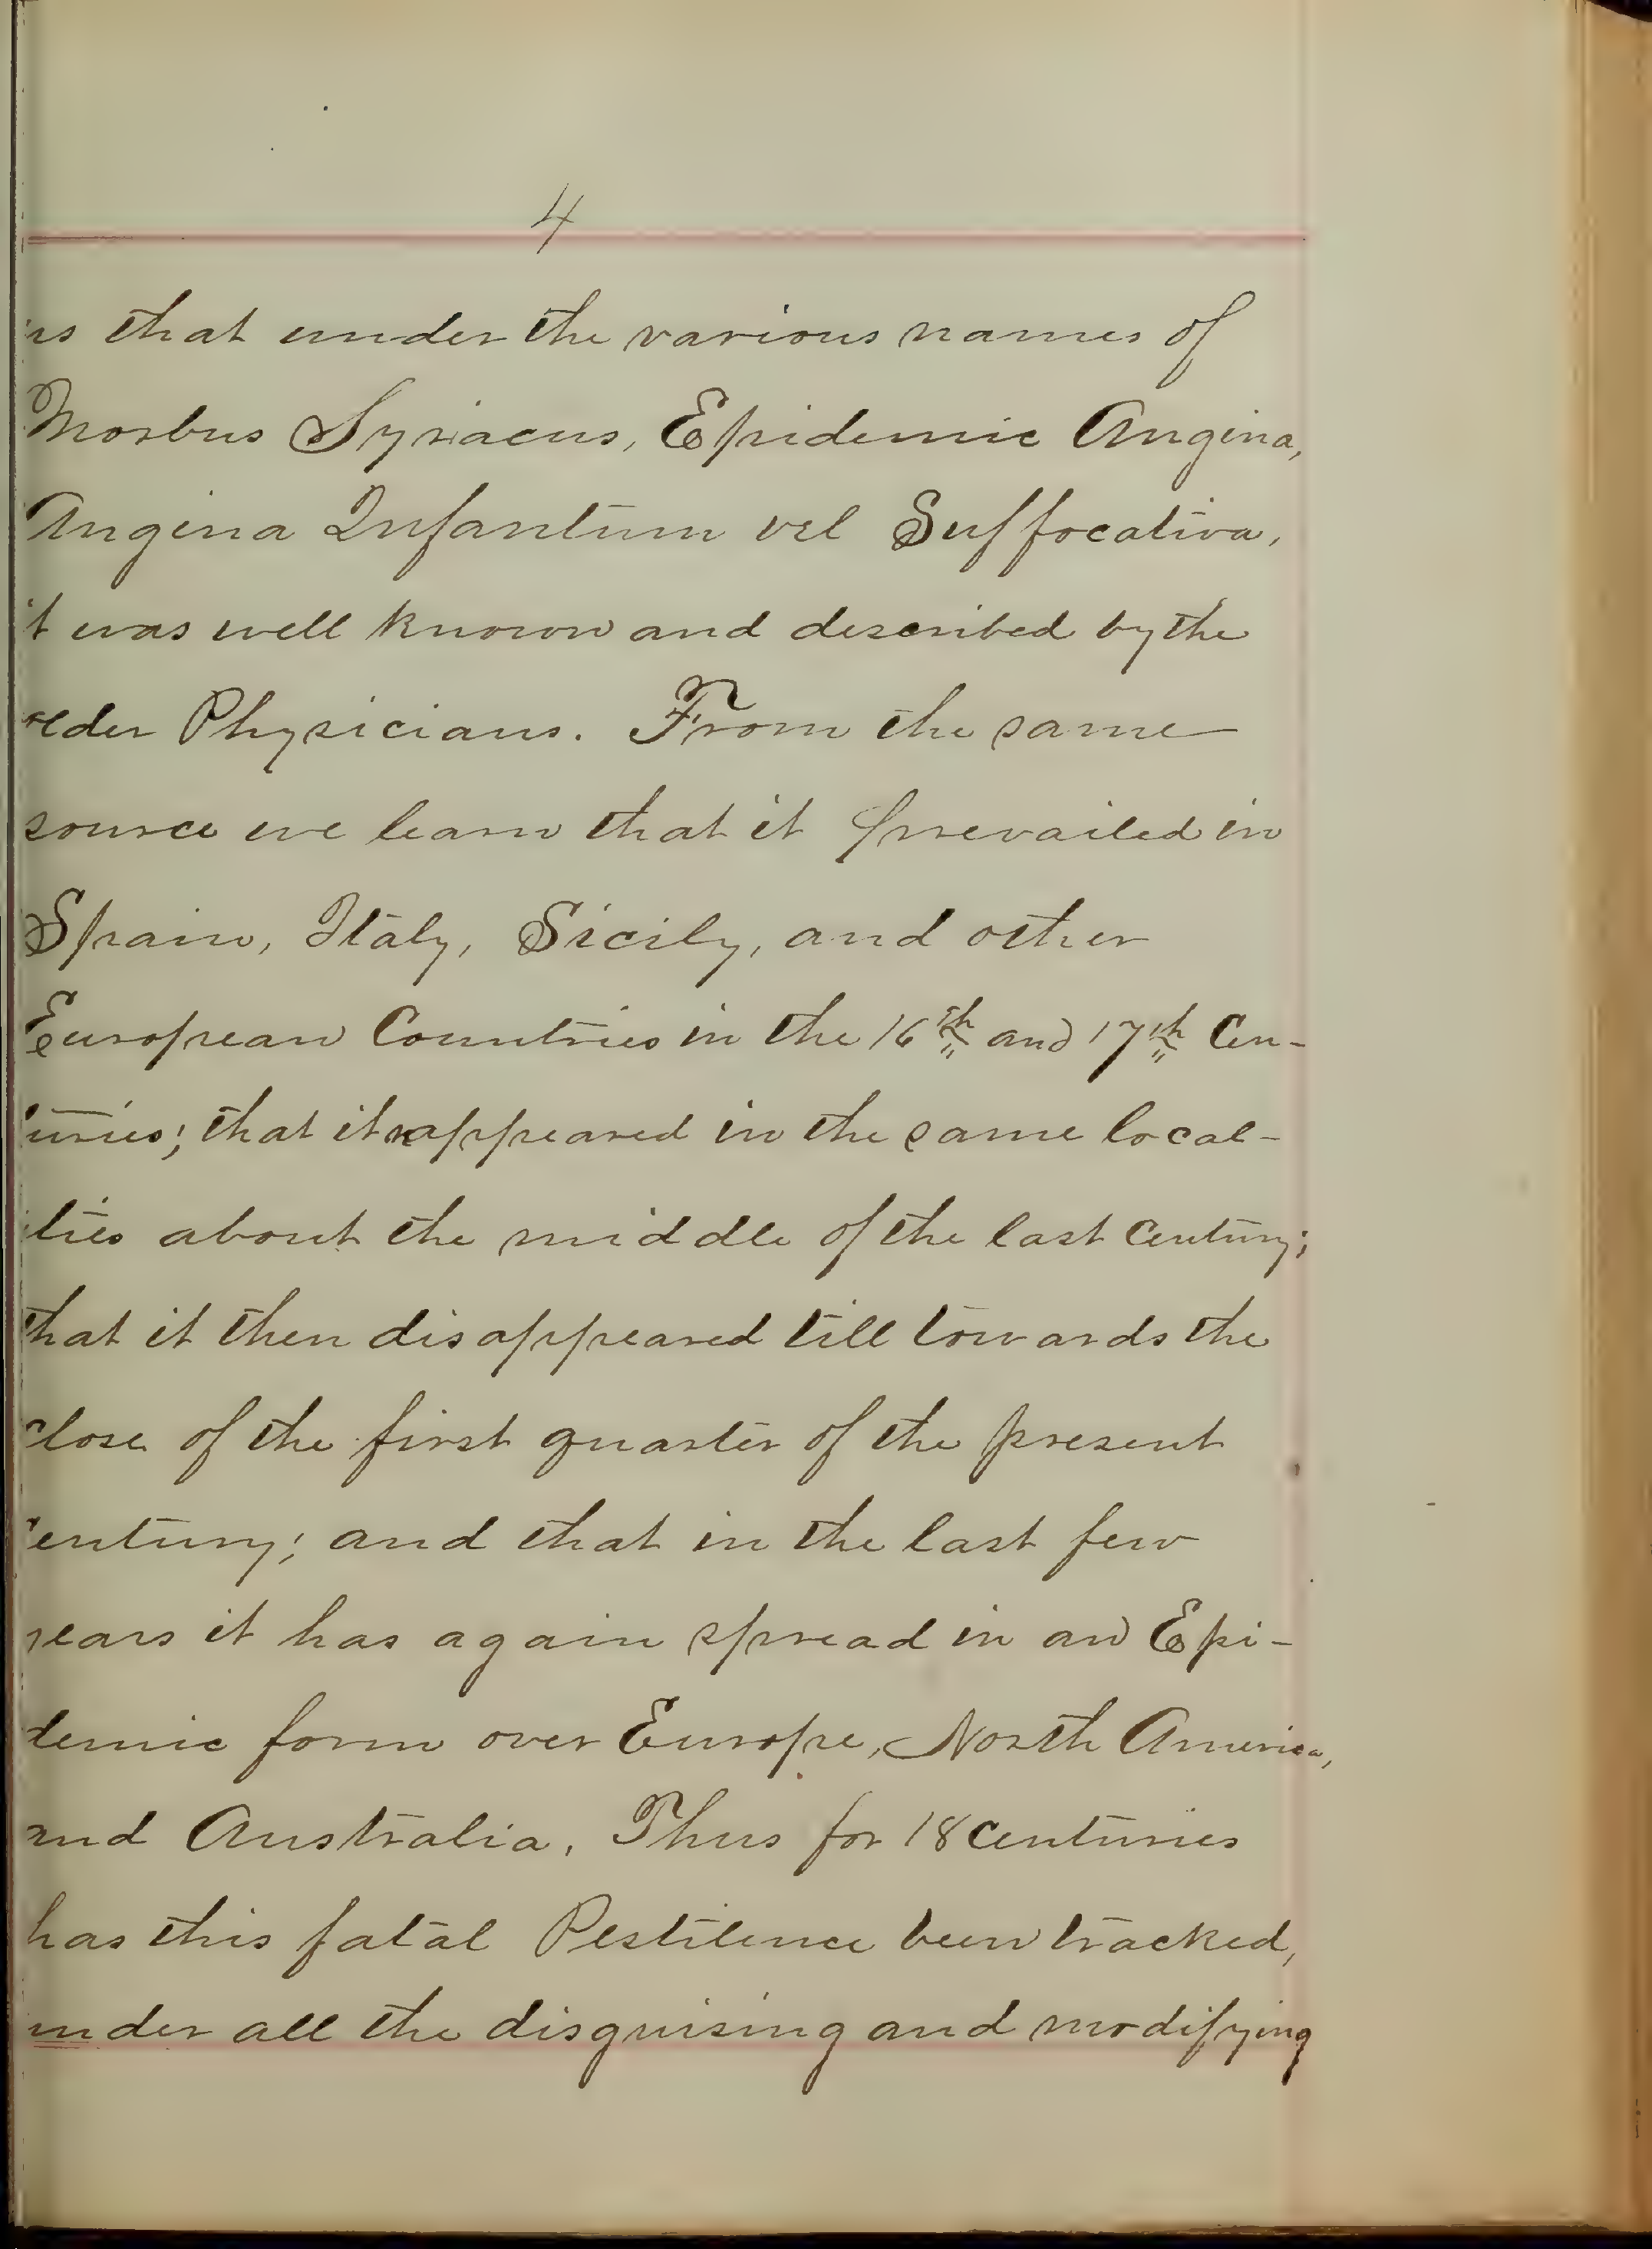 4
us that under the various names of
Morbus Syriacus, Epidemic Angina,
Angina Infantum vel Suffocativa,
it was well known and described by the
older Physicians. From the same
source we learn that it prevailed in
Spain, Italy, Sicily, and other
European Countries in the 16th and 17th Cen-
turies; that it reappeared in the same local-
ities about the middle of the last Century;
that it then disappeared till towards the
close of the first quarter of the present
Century; and that in the last few
years it has again spread in an Epi-
demic form over Europe, North America,
and Australia. Thus for 18 Centuries
has this fatal Pestilence been tracked,
under all the disguising and modifying